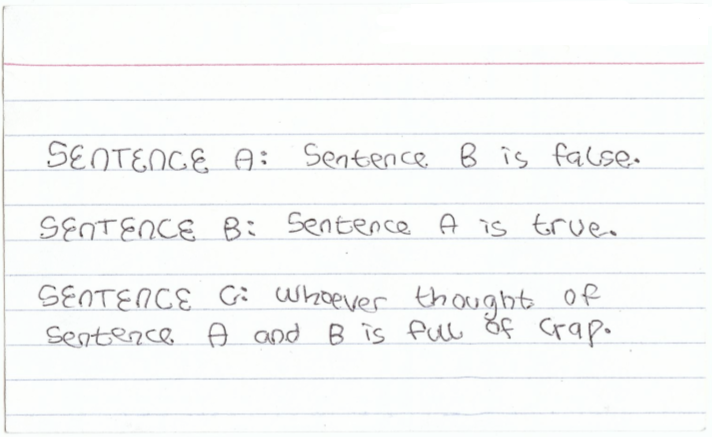 SENTENCE A: Sentence B is false.
SENTENCE B: Sentence A is true.
SENTENCE C: Whoever thought of
Sentence A and B is full of crap.